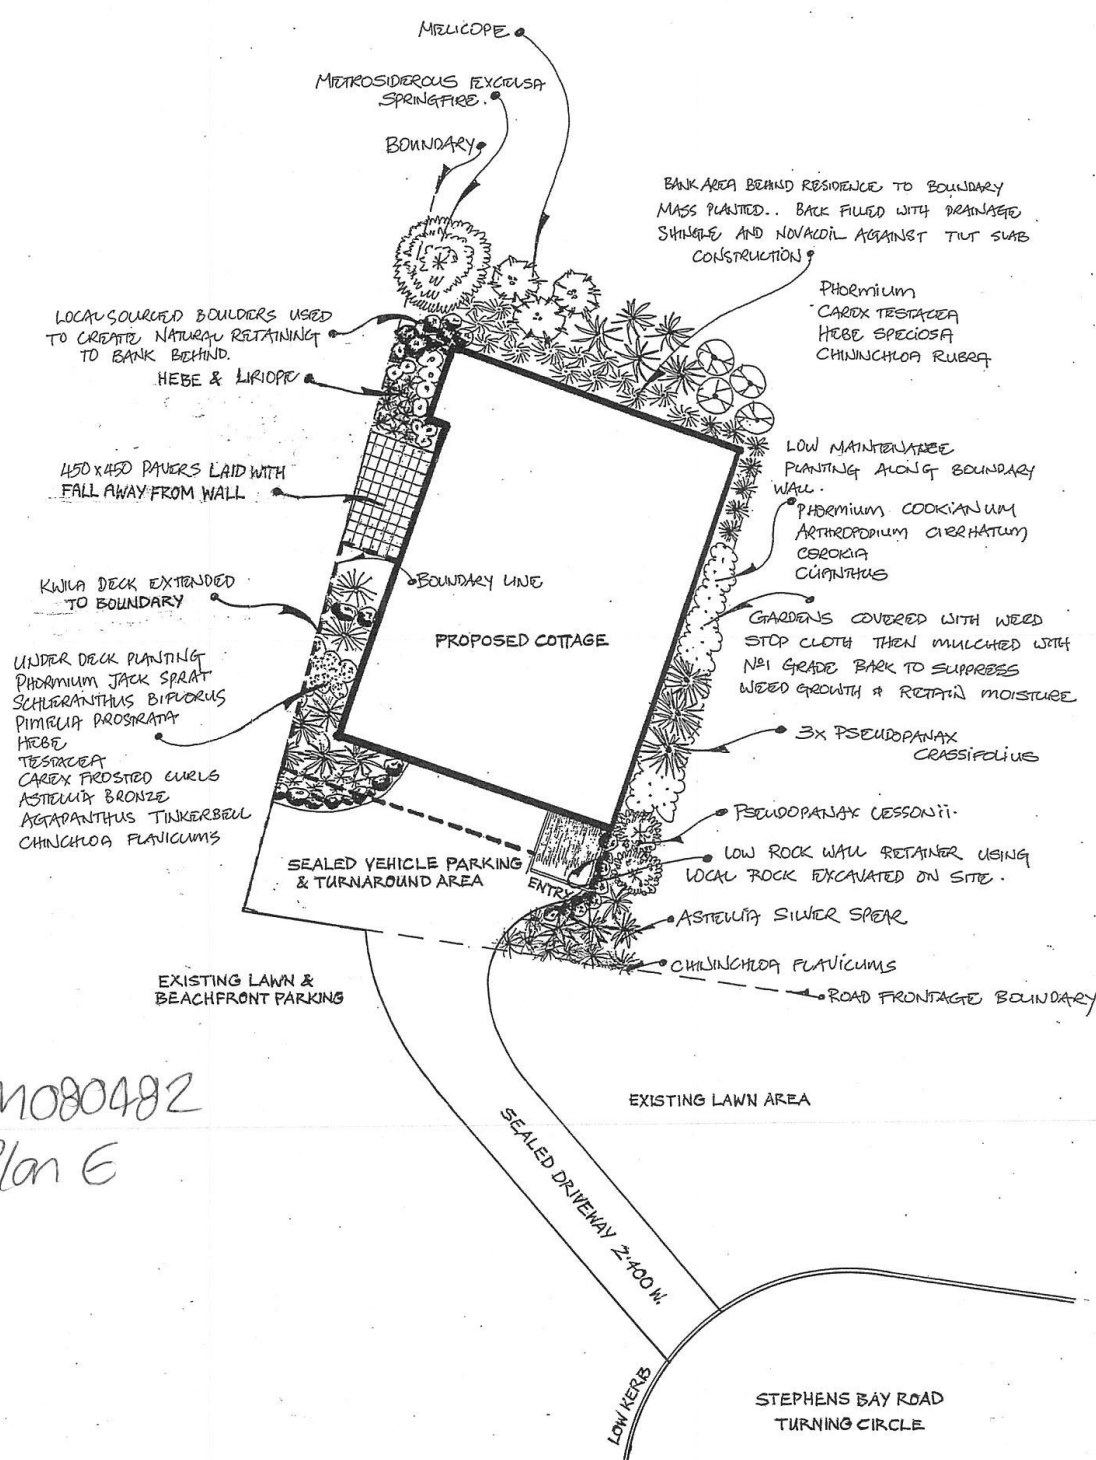 MELICOPE
METROSIDEROUS EXCELSA
SPRINGFIRE.
BOUNDARY
BANK AREA BEHIND RESIDENCE TO BOUNDARY
MASS PLANTED.. BACK FILLED WITH DRAINAGE
SHINGLE AND NOVACOIL AGAINST TILT SLAB
CONSTRUCTION
PHORMIUM
CAREX TESTACEA
HEBE SPECIOSA
CHININCHLOA RUBRA
LOCAL SOURCED BOULDERS USED
TO CREATE NATURAL RETAINING
TO BANK BEHIND.
HEBE & LIRIOPE
450 x 450 PAVERS LAID WITH
FALL AWAY FROM WALL
LOW MAINTENANCE
PLANTING ALONG BOUNDARY
WALL.
PHORMIUM COOKIANUM
ARTHROPODIUM CIRRHATUM
COROKIA
CLIANTHUS
KWILA DECK EXTENDED
TO BOUNDARY
BOUNDARY LINE
PROPOSED COTTAGE
GARDENS COVERED WITH WEED
STOP CLOTH THEN MULCHED WITH
Nº1 GRADE BARK TO SUPPRESS
WEED GROWTH & RETAIN MOISTURE
UNDER DECK PLANTING
PHORMIUM JACK SPRAT
SCHLERANTHUS BIFLORUS
PIMELIA PROSTRATA
HEBE
TESTACEA
CAREX FROSTED CURLS
ASTELLIA BRONZE
AGAPANTHUS TINKERBELL
CHINCHLOA FLAVICUMS
3x PSEUDOPANAX
CRASSIFOLIUS
PSEUDOPANAX LESSONII.
LOW ROCK WALL RETAINER USING
LOCAL ROCK EXCAVATED ON SITE.
SEALED VEHICLE PARKING
& TURNAROUND AREA
ENTRY
ASTELLIA SILVER SPEAR
CHININCHLOA FLAVICUMS
ROAD FRONTAGE BOUNDARY
EXISTING LAWN &
BEACHFRONT PARKING
M080482
Plan E
EXISTING LAWN AREA
SEALED DRIVEWAY 2.400 W.
LOW KERB
STEPHENS BAY ROAD
TURNING CIRCLE